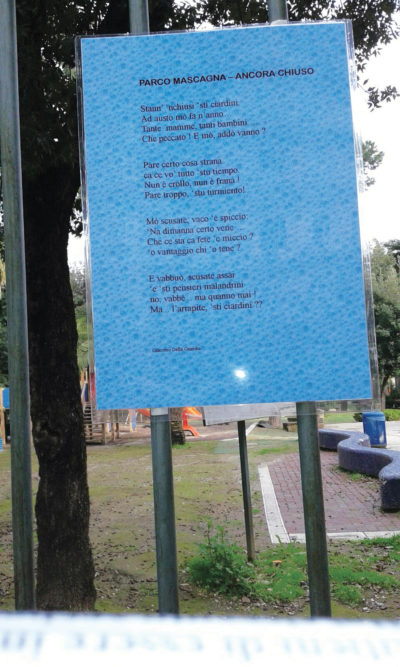 PARCO MASCAGNA – ANCORA CHIUSO
Stann' 'nchiusi 'sti ciardini.
Ad austo mo fa n'anno.
Tante mamme, tanti bambini.....
Che peccato ! E mò, addò vanno ?
Pare certo cosa strana
ca ce vo' tutto 'stu tiempo.
Nun è crollo, nun è frana !
Pare troppo, 'stu turmiento!
Mò scusate, vaco 'e spiccio:
'Na dimanna certo vene
Ché ce sta ca fete 'e miccio ?
'o vantaggio chi 'o tene ?
E vabbuò, scusate assai
'e' sti pensieri malandrini
no, vabbè... ma quanno mai !
Ma... l'arrapite, 'sti ciardini ??
Giacomo Della Guardia
di essere in